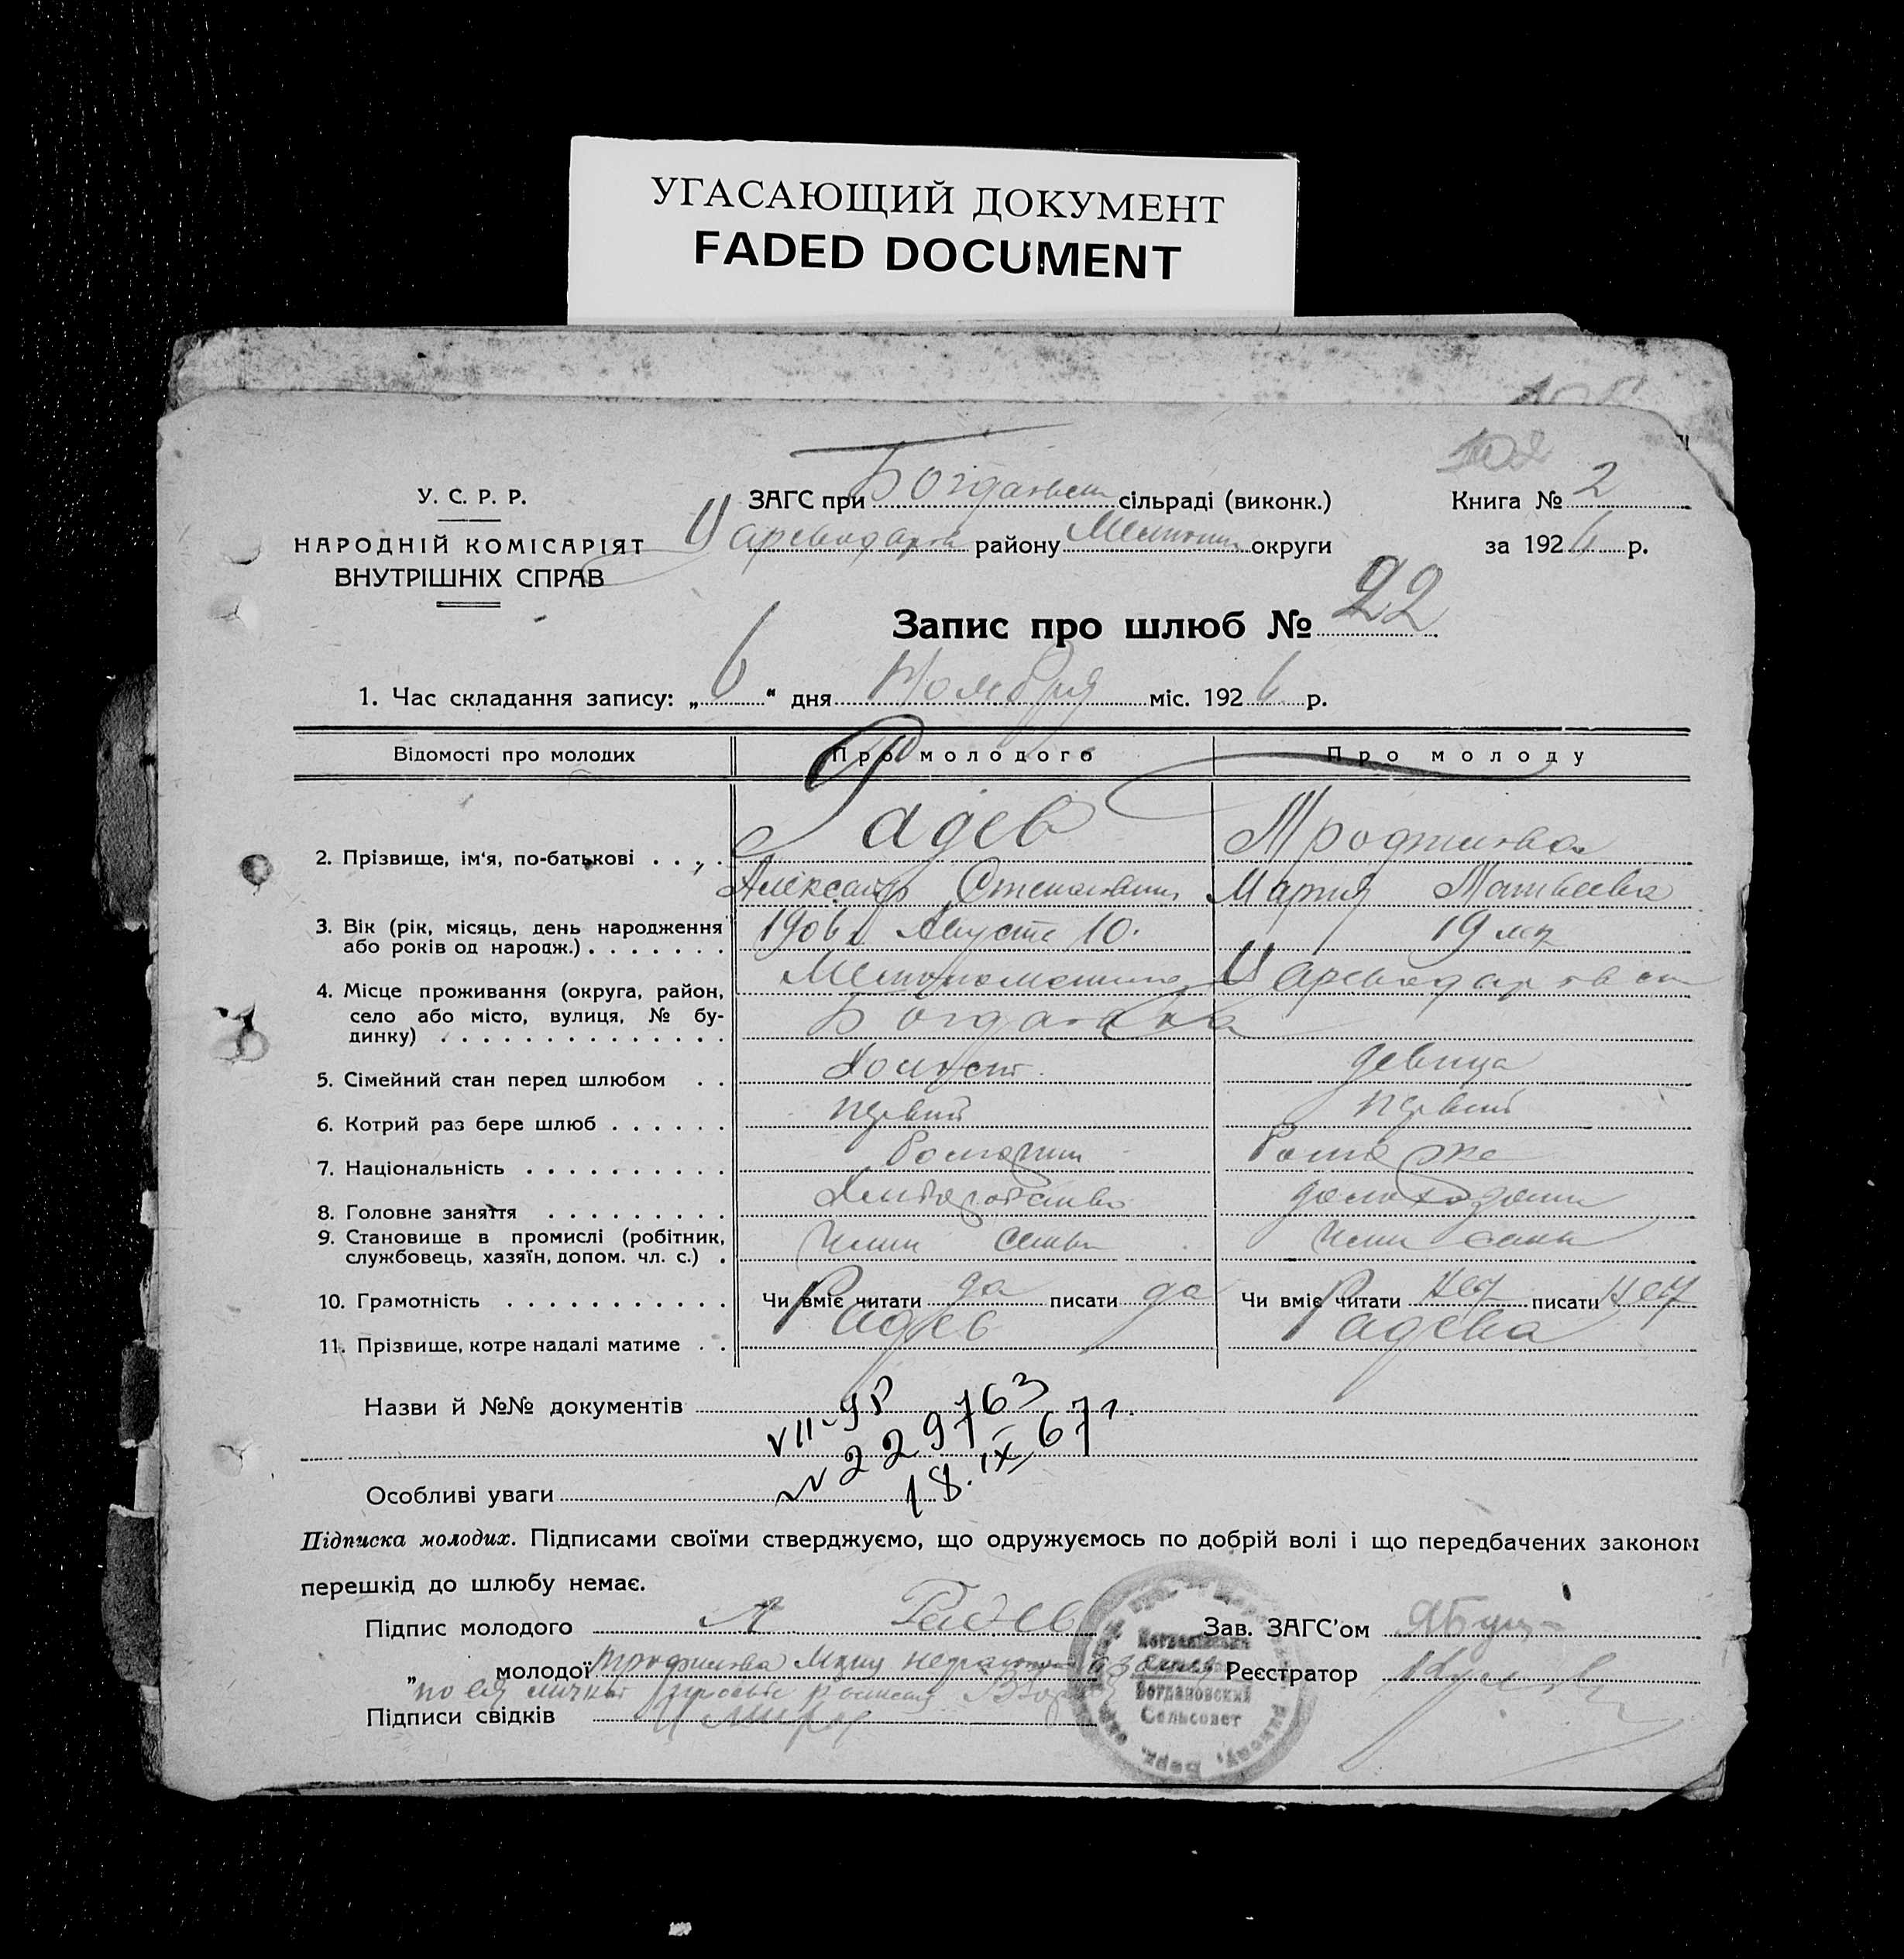 УГАСАЮЩИЙ ДОКУМЕНТ
FADED DOCUMENT
У. С. Р. Р.
НАРОДНІЙ КОМІСАРІЯТ
ВНУТРІШНІХ СПРАВ
ЗАГС при сільраді (виконк.)
району округи
Книга № 2
за 1926 р.
Запис про шлюб № 22
1. Час складання запису: „6“ дня Ноября міс. 1926 р.
Відомості про молодих Про молодого Про молоду
2. Прізвище, ім'я, по-батькові Радев
Александр Степанович Мария Матвеевна
3. Вік (рік, місяць, день народження
або років од народж.) 1906 Августа 10. 19 лет
4. Місце проживання (округа, район,
село або місто, вулиця, № бу-
динку) Богдановка
5. Сімейний стан перед шлюбом Холост девица
6. Котрий раз бере шлюб первый первый
7. Національність Болгарин Болгарка
8. Головне заняття Хлеборобство
9. Становище в промислі (робітник,
службовець, хазяїн, допом. чл. с.) член семьи член семьи
10. Грамотність Чи вміє читати да писати да Чи вміє читати нет писати нет
11. Прізвище, котре надалі матиме Радев Радева
Назви й №№ документів
VII-ЯР
№ 229763
18.IX 67г.
Особливі уваги
Підписка молодих. Підписами своїми стверджуємо, що одружуємось по добрій волі і що передбачених законом
перешкід до шлюбу немає.
Підпис молодого А Радев Зав. ЗАГС'ом
„ молодої Реєстратор
по ея личной просьбе
Підписи свідків
Богдановский
Сельсовет